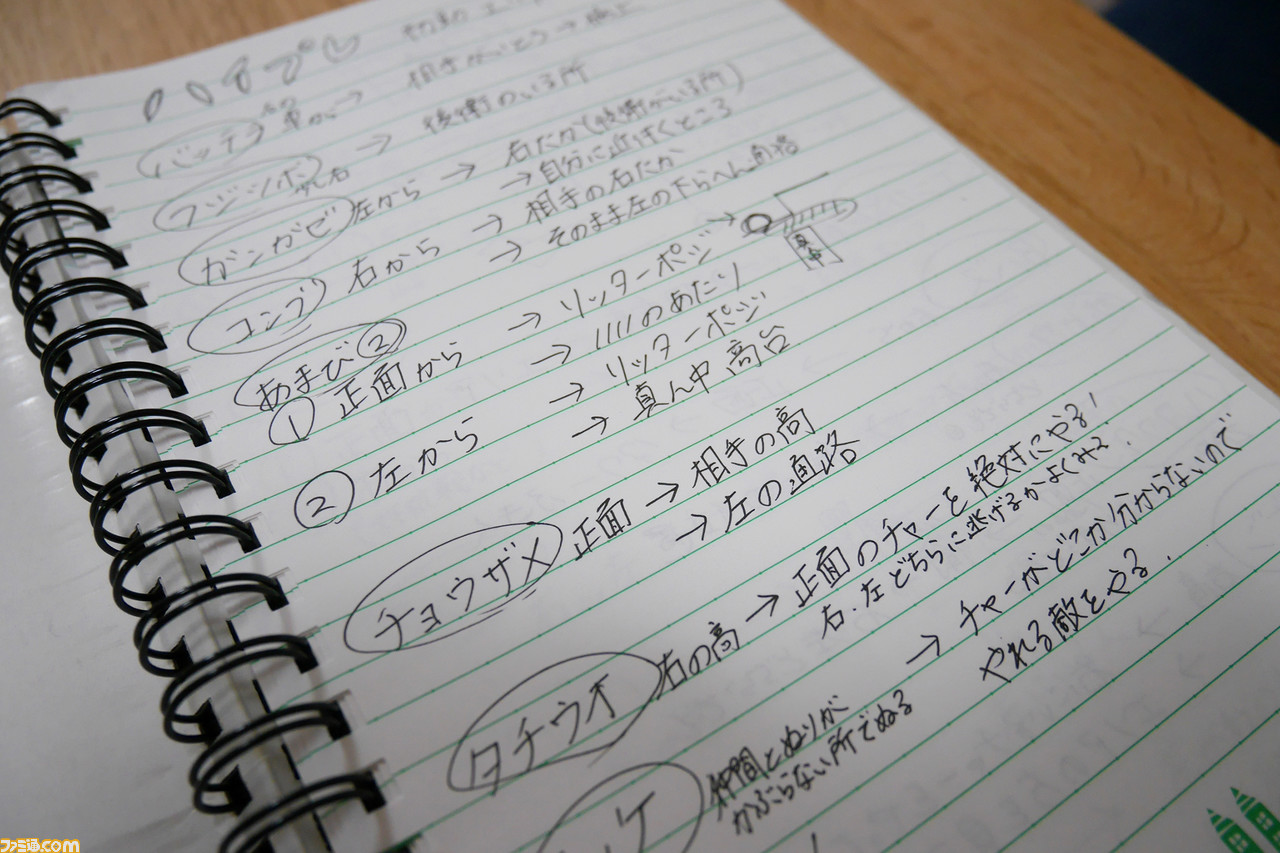 ハイプレ
初動
バッテラ 右の車から→ 相手がどう→
フジツボ 少し右 → 後衛のいる所
ガンガゼ 左から → 右だか(後衛がいる所)
→自分に近づくところ
コンブ 右から → 相手の右だか
→ そのまま左の下らへん通路
あまび②
① 正面から → リッターポジ →
→ 〃のあたり
② 左から → リッターポジ
→ 真ん中高台
チョウザメ 正面 → 相手の高
→ 左の通路
タチウオ 右の高 → 正面のチャーを絶対にやる!
右・左どちらに逃げるかよくみる.
ケ 仲間とぬりが
かぶらない所でぬる
→ チャーがどこか分からないので
やれる敵をやる.
ファミ通.com